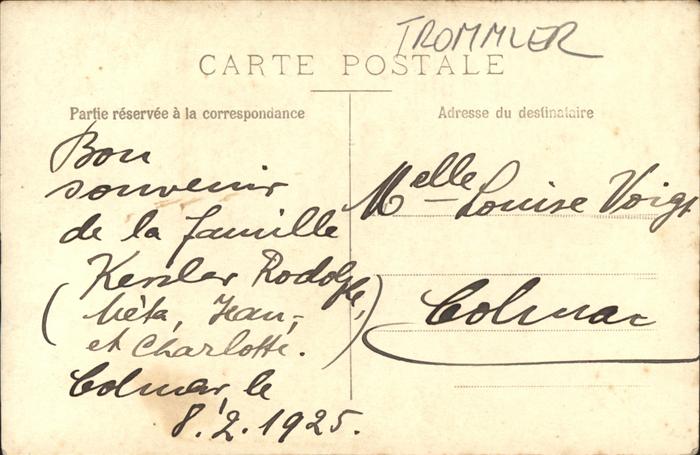 TROMMLER
CARTE POSTALE
Partie réservée à la correspondance
Adresse du destinataire
Bon
souvenir
de la famille
Kessler Rodolphe,
(Méta, Jean,
et Charlotte.)
Colmar, le
8.2.1925.
Melle Louise Voigt
Colmar